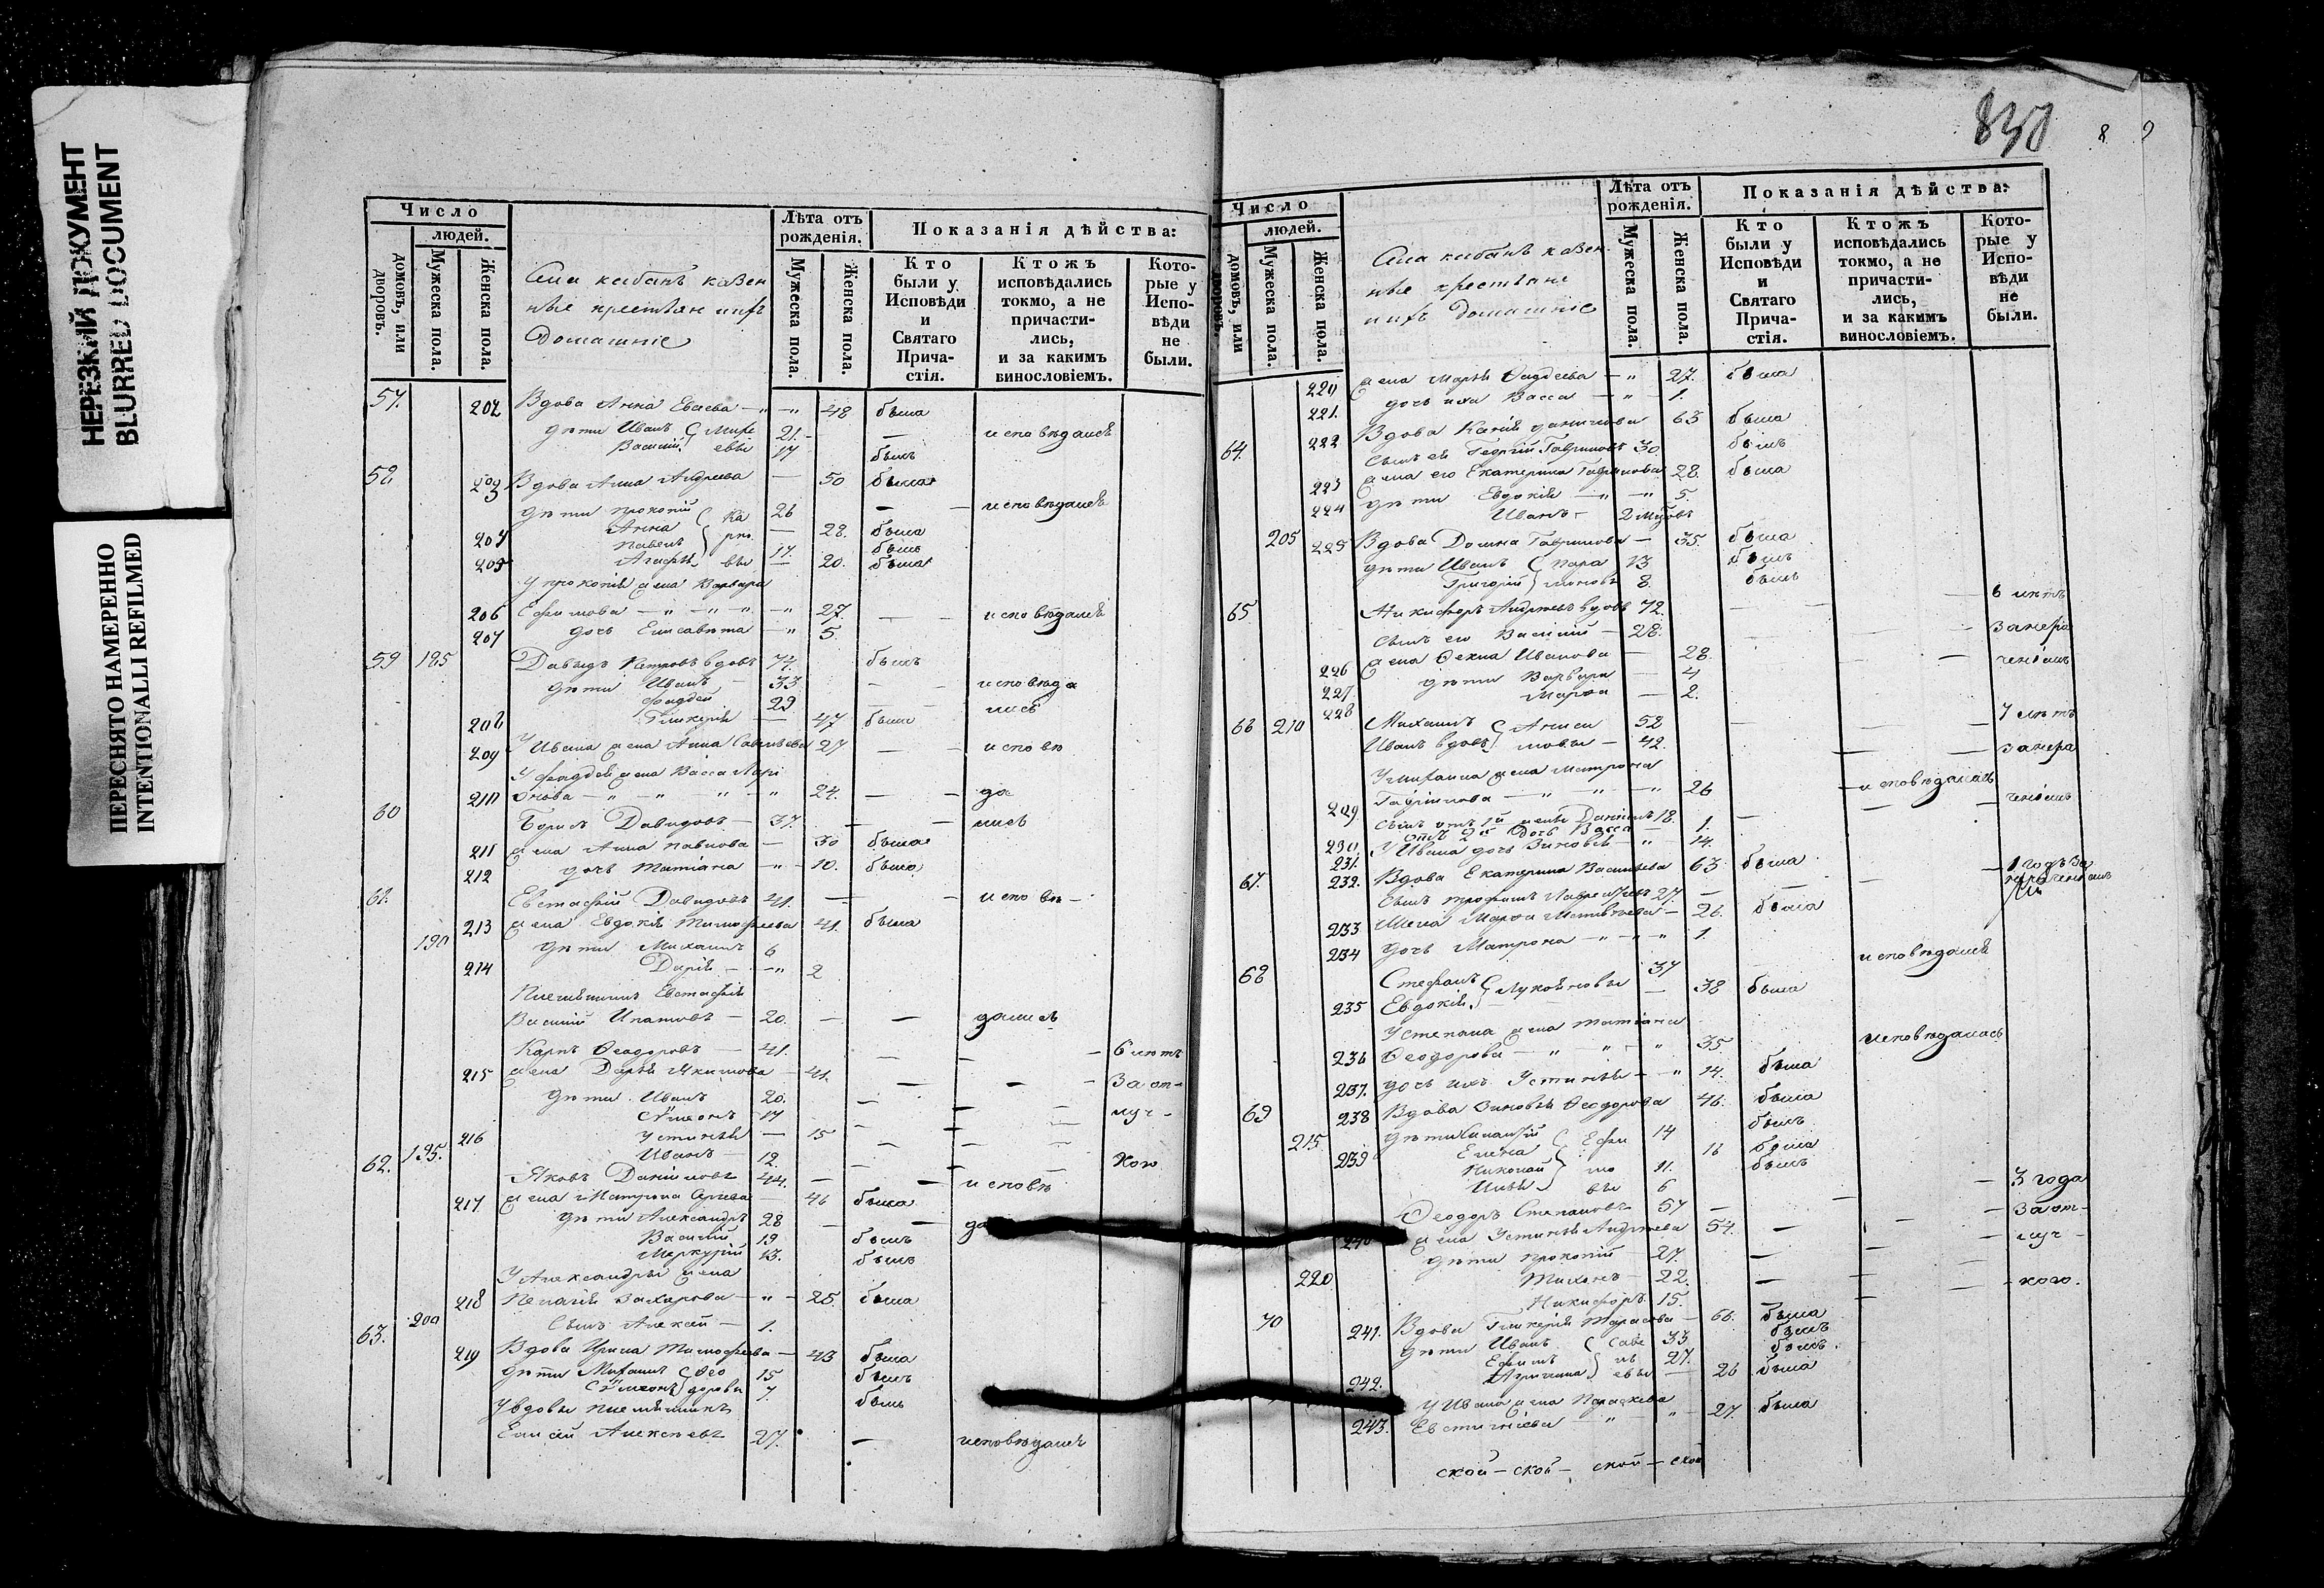 НЕРЕЗКИЙ ДОКУМЕНТ
BLURRED DOCUMENT
ПЕРЕСНЯТО НАМЕРЕННО
INTENTIONALLY REFILMED
Число
людей.
домовъ, или дворовъ.
Мужеска пола.
Женска пола.
Домашніе
Лѣта отъ рожденія.
Мужеска пола.
Женска пола.
Показанія дѣйства:
Кто были у Исповѣди и Святаго Прича-стія.
Ктожъ исповѣдались токмо, а не причасти-лись, и за какимъ винословіемъ.
Кото-рые у Испо-вѣди не были.
57. 202 Вдова Анна 48 была
дѣти Иванъ 21 исповѣдался
Василий 17 былъ
58 203 Вдова Анна Андреева 50 была
дѣти Прокопий 26 исповѣдался
204 Анна 28. была
Павелъ 17. былъ
205 20. была
У Прокопия жена Варвара
206 Ефимова 27. исповѣдалась
207 дочь Елисавета 5.
59 185 Давыдъ Петровъ вдовъ 74. былъ
дѣти Иванъ 33
Фаддей 29
208 Гликерия 47 была
209 У Ивана жена Анна Савельева 27
У Фаддея жена Васса
210 24.
60 Борисъ Давидовъ 37.
211 жена Анна Павлова 30 была
212 дочь Татіана 10. была
61. Евстафий Давидовъ 41.
213 жена Евдокия Тимофеева 41. была
190 дѣти Михаилъ 6
214 Дария 2
Племянникъ Евстафия
Василий Ипатовъ 20. дались
Карпъ Ѳеодоровъ 41. 6 лѣтъ
215 жена Дарья Якимова 41. За от-
дѣти Иванъ 20. луч-
Симеонъ 17
216 Устинья 15
195. Иванъ 12. кою
62. Яковъ Данииловъ 44. исповѣ
217 жена Матрона 46 была
дѣти Александръ 28
Василий 19 былъ
Меркурий 13. былъ
У Александра жена
218 Пелагия Захарова 25. была
200 Сынъ Алексей 1.
63. 219 Вдова Ирина Тимофеева 43 была
дѣти Михаилъ Ѳео 15 былъ
Симеонъ доровы 7. былъ
У вдовы племянникъ
Елисей Алексеевъ 27. исповѣдался
838
8 9
Число
людей.
домовъ, или дворовъ.
Мужеска пола.
Женска пола.
ихъ домашніе
Лѣта отъ рожденія.
Мужеска пола.
Женска пола.
Показанія дѣйства:
Кто были у Исповѣди и Святаго Прича-стія.
Ктожъ исповѣдались токмо, а не причасти-лись, и за какимъ винословіемъ.
Кото-рые у Испо-вѣди не были.
220 жена Марья Фаддеева 27. была
221. дочь ихъ Васса 1.
64. 222 Вдова 63 была
Сынъ ея Георгий Гавриловъ 30. былъ
223 жена его Екатерина Гаврилова 28. была
224 дѣти Евдокия 5.
Иванъ 2
205 225 Вдова Домна Гаврилова 35. была
дѣти Иванъ 13 былъ
Григорий 8. былъ
65 Никифоръ Андреевъ вдовъ 72. 6 лѣтъ
Сынъ его Василий 28. занера
226 жена Фекла Иванова 28. ченіемъ
227 дѣти Варвара 4
228 Марфа 2.
66 210 Михаилъ 52 7 лѣтъ
Иванъ вдовъ 42. занера
У Михаила жена Матрона
229 Гаврилова 26 исповѣдалась ченіемъ
Сынъ отъ 1й жены Даниилъ 18.
230 отъ 2й дочь Васса 1.
231. У Ивана дочь Зиновья 14.
67. 232. Вдова Екатерина Васильева 63 была 1 годъ за
Сынъ Трофимъ 27.
233 Жена Марфа Матвѣева 26. была
234 дочь Матрона 1.
68 Стефанъ Лукояновы 37 исповѣдался
235 Евдокия 38 была
У Степана жена Татіана
236 Ѳеодорова 35. исповѣдалась
237. дочь ихъ Устинья 14. была
69 238 Вдова Зиновья Ѳеодорова 46. была
215. дѣти 14 былъ
239 Елена 16 была
Николай 11. былъ
Илья 6
Ѳеодоръ Степановъ 57 3 года
240 жена Устинья Андреева 54. За от-
дѣти Прокопий 27. луч-
220 Тихонъ 22. кою.
Никифоръ 15.
70 241. Вдова Гликерия Тарасова 66. была
дѣти Иванъ 33 былъ
Ефимъ 27. былъ
242. 26 была
У Ивана жена Параскева
243. Евстигнеева 27. была